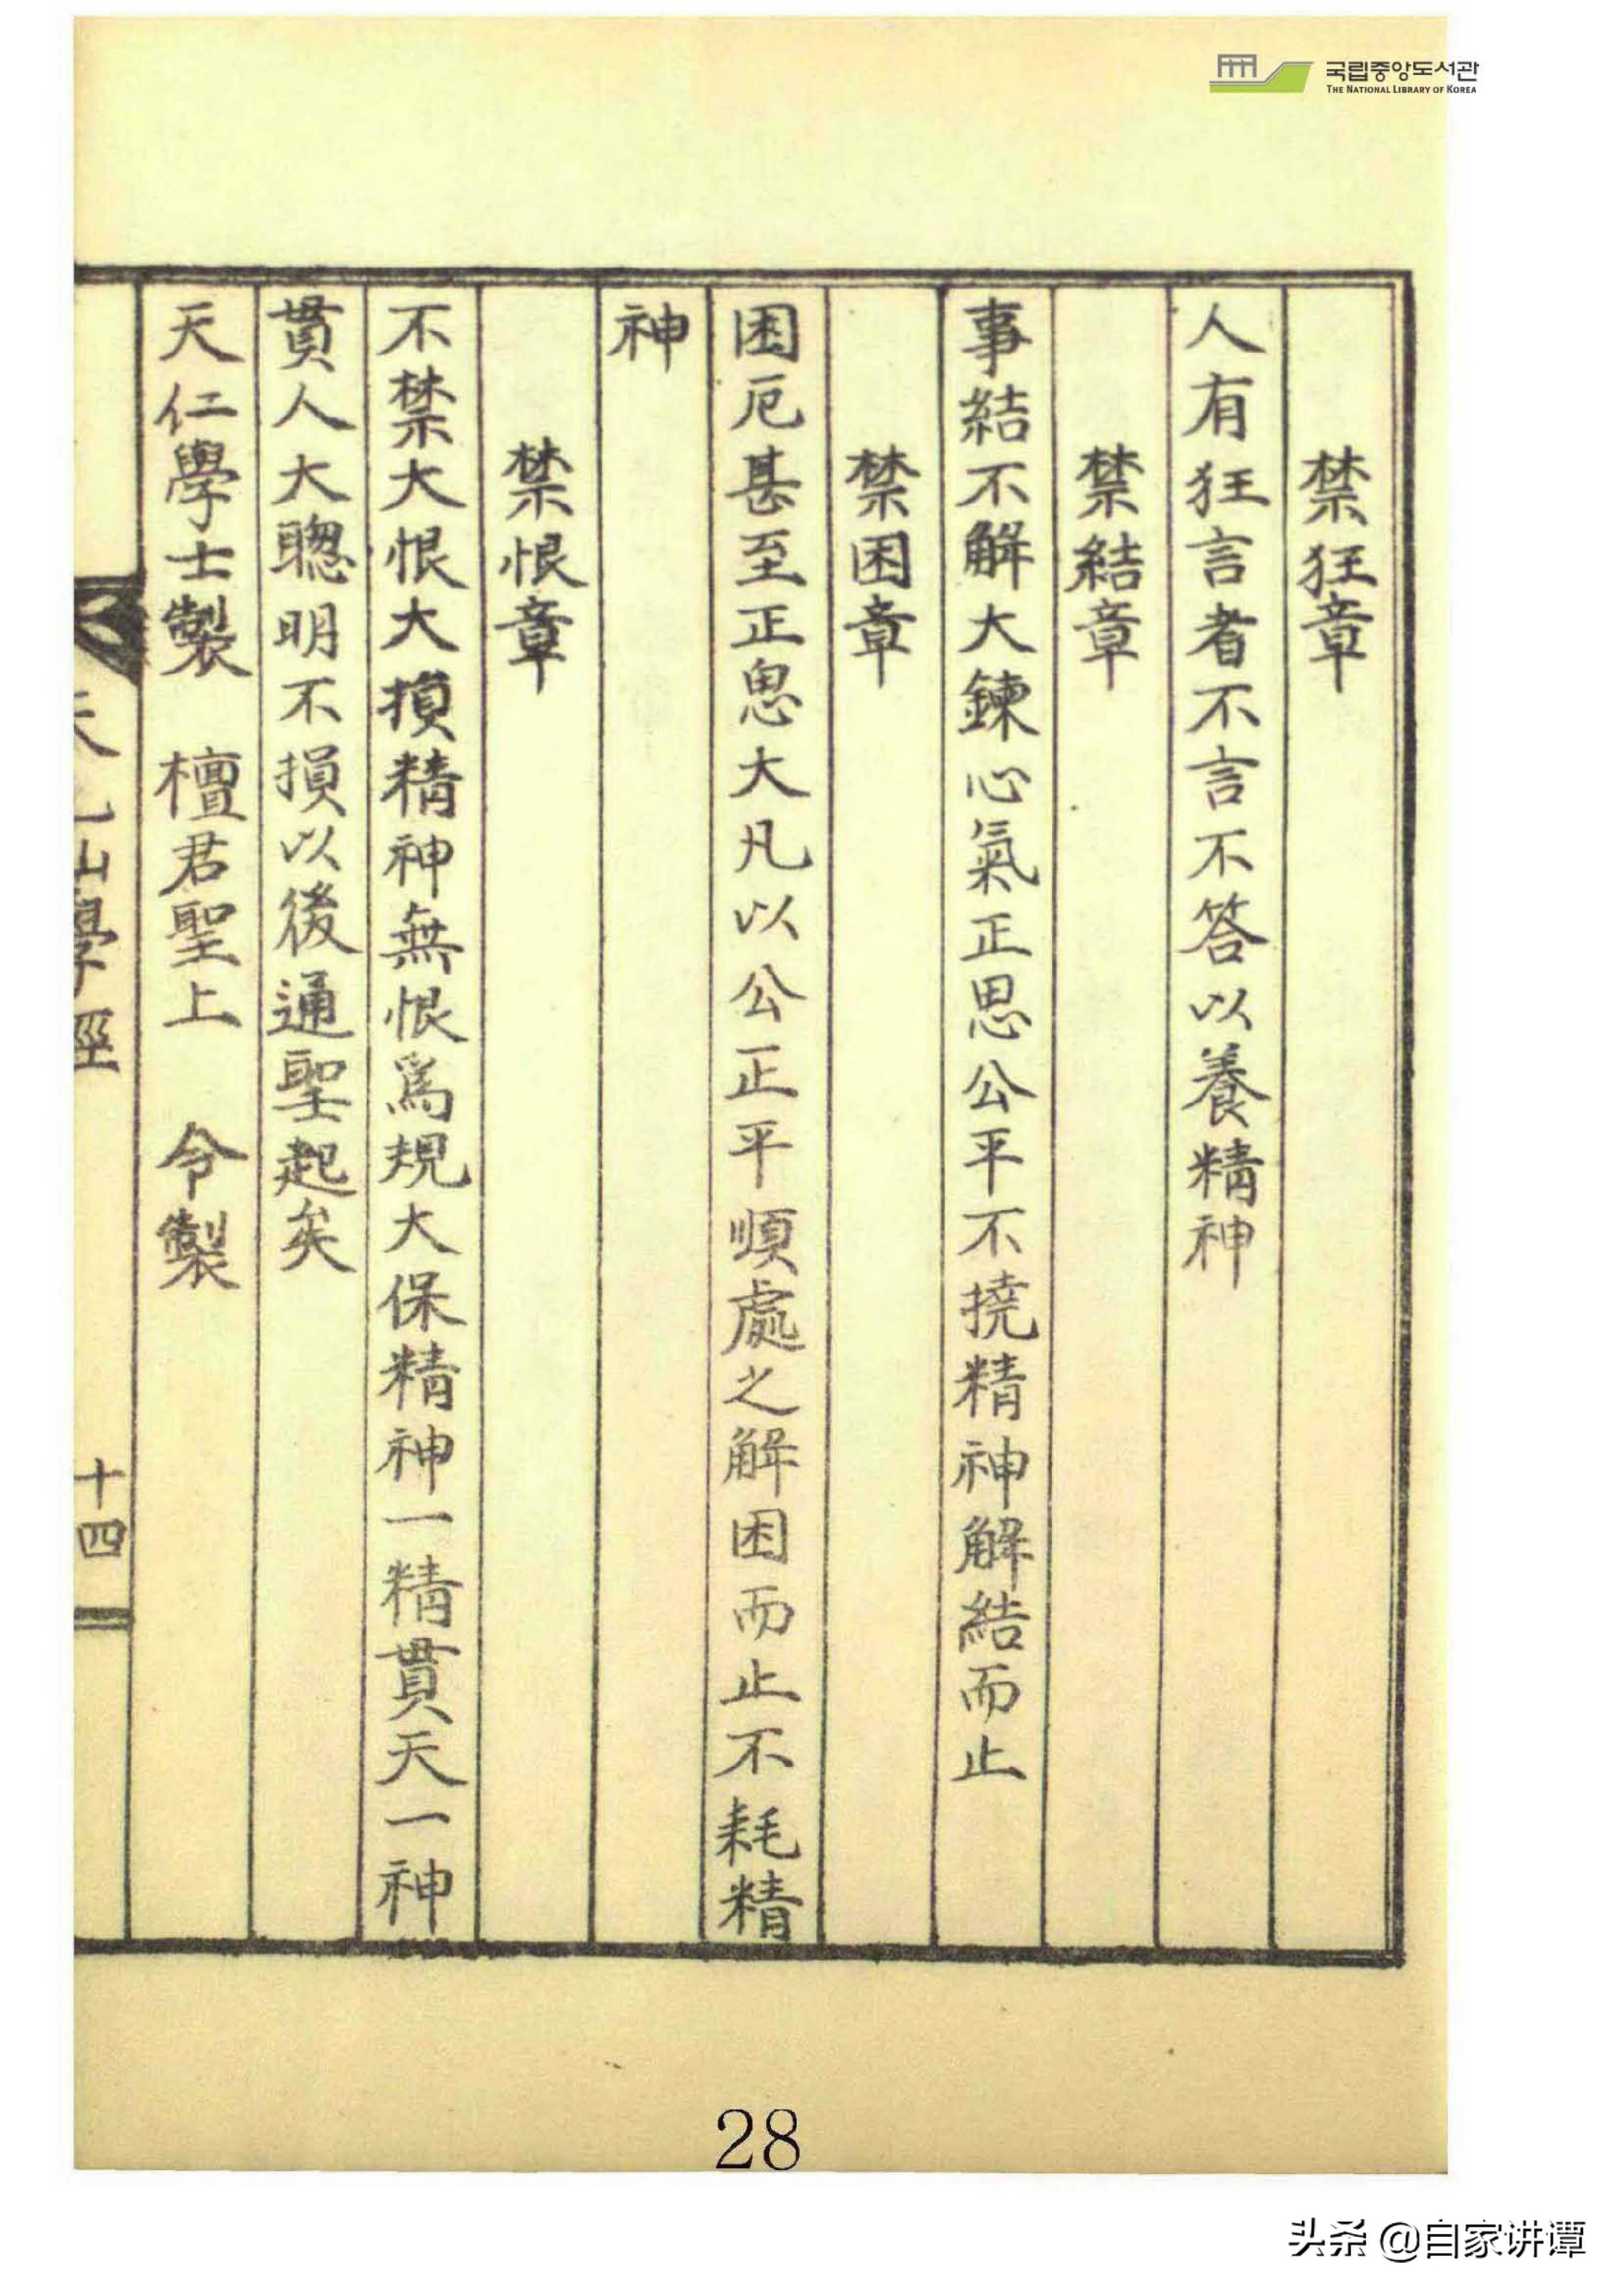 국립중앙도서관
THE NATIONAL LIBRARY OF KOREA
禁狂章
人有狂言者不言不答以養精神
禁結章
事結不解大鍊心氣正思公平不撓精神解結而止
禁困章
困厄甚至正思大凡以公正平順處之解困而止不耗精
神
禁恨章
不禁大恨大損精神無恨爲規大保精神一精貫天一神
貫人大聰明不損以後通聖起矣
天仁學士製 檀君聖上 令製
學經
十四
28
头条 @自家讲谭